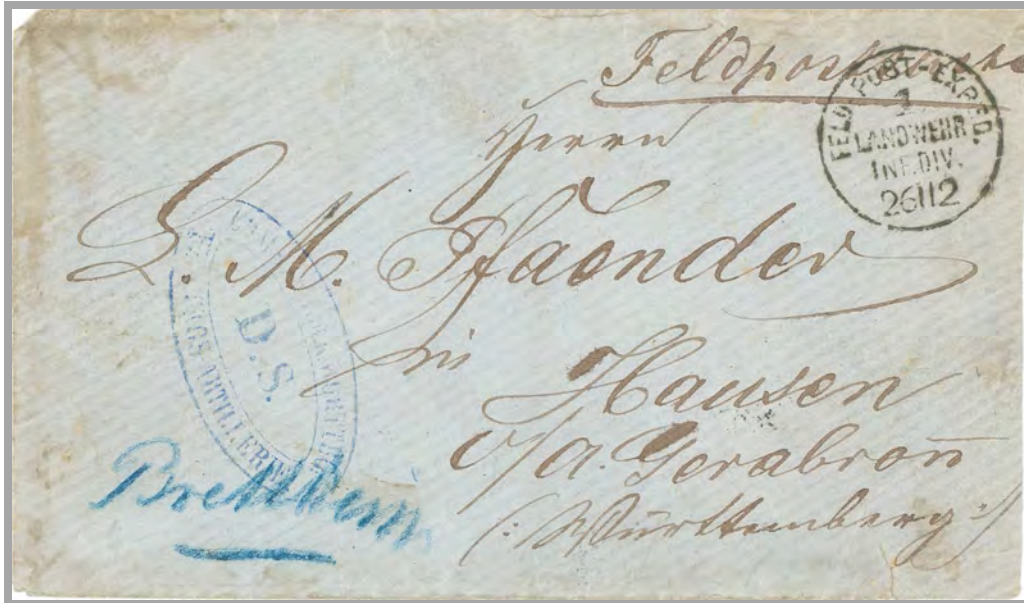 Feldpost
FELD-POST-EXPED.
1
LANDWEHR
INF. DIV.
26 12
Herrn
L. M. Pfaender
in
Hausen
o/a. Gerabroñ
(: Württemberg :)
D.S.
ARTILLERIE
Brettheim